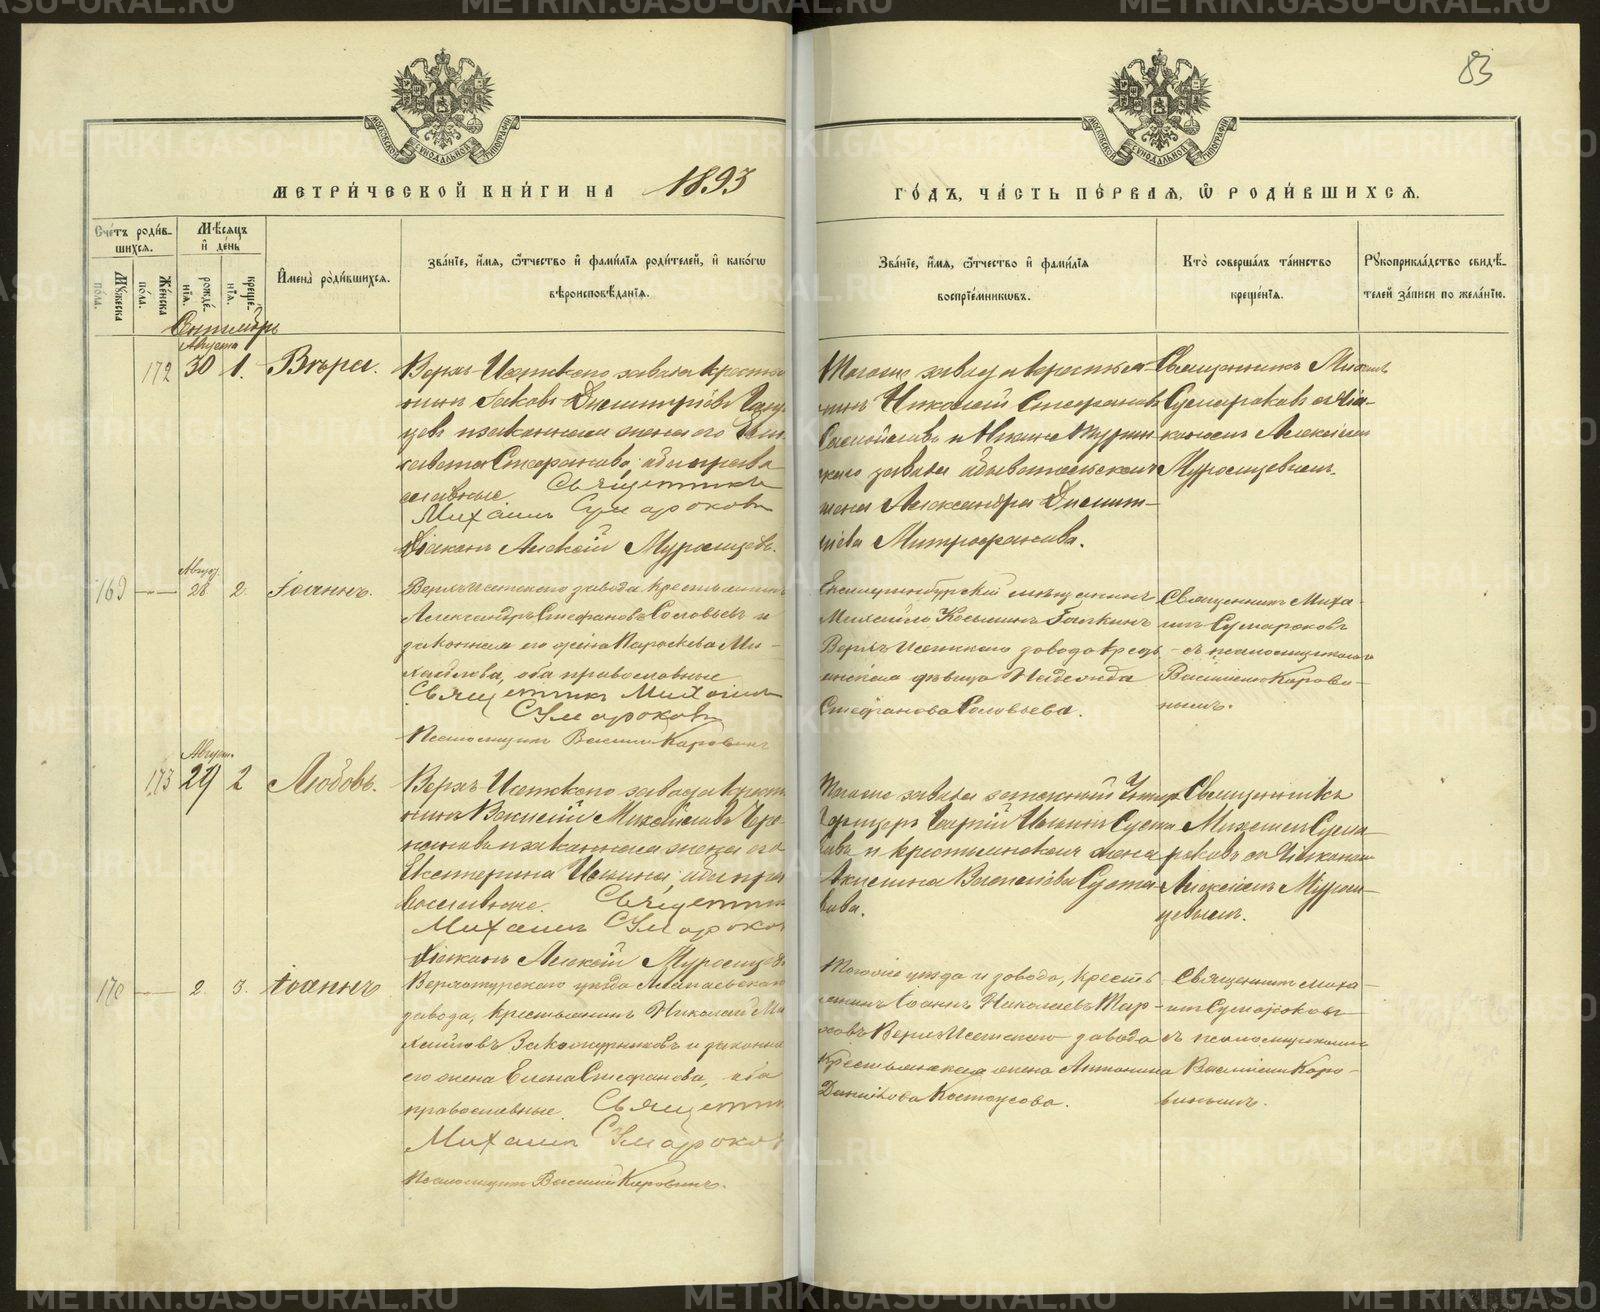 83
МЕТРИ́ЧЕСКОЙ КНИ́ГИ НА 1893
ГО́ДЪ, ЧА́СТЬ ПЕ́РВАЯ, Ѡ РОДИ́ВШИХСЯ.
Сче́тъ роди́в-
шихся.
Мѣ́сяцъ
и҆ де́нь
Мꙋ́жеска
по́ла.
Же́нска
по́ла.
рожде́-
нія.
креще́-
нія.
И҆мена̀ роди́вшихся.
Зва́ніе, и҆́мя, ѻ҆́тчество и҆ фами́лія роди́телей, и҆ како́гѡ
вѣроисповѣ́данія.
Зва́ніе, и҆́мя, ѻ҆́тчество и҆ фами́лія
воспріе́мникѡвъ.
Кто̀ соверша́лъ та́инство
креще́нія.
Рꙋкоприкла́дство свидѣ́-
телей за́писи по жела́нію.
Сентябрь
Августа
172 30 1. Вѣра.
Верхъ-Исетскаго завода кресть
янинъ Іаковъ Димитріевъ
цевъ и законная жена его
савета Стефанова, оба право
славные. Священникъ
Михаилъ Сумароковъ
Діаконъ Алексій Муромцевъ.
Тогоже завода крестья-
нинъ Николай Стефановъ
и Нижне Турин
скаго завода обывательская
жена Александра Димит-
ріева Митрофанова.
Священникъ Михаилъ
Сумароковъ съ діа-
кономъ Алексіем
Муромцевымъ.
Август.
169 — 28 2. Іоаннъ.
Верхъ-Исетскаго завода крестьянинъ
Александръ Стефановъ Соловьевъ и
законная его жена Параскева Ми-
хайлова, оба православные
Священникъ Михаилъ
Сумароковъ
Псаломщикъ Василій Каровинъ
Екатеринбургскій мѣщанинъ
Михаило Косьминъ Галкинъ
Верхъ-Исетскаго завода крест
янская дѣвица Надежда
Стефанова Соловьева.
Священникъ Миха-
илъ Сумароковъ
съ псаломщикомъ
Василіемъ Карови-
нымъ.
Август.
173 29 2 Любовь.
Верхъ-Исетскаго завода крест
янинъ Василій Михайловъ
и законная жена его
Екатерина Ильина, оба пра
вославные. Священник
Михаилъ Сумароков
Діаконъ Алексій Муромцев
Тогоже завода запасный Унтеръ
офицеръ Георгій Ильинъ
и крестьянская жена
Акилина
Священникъ
Михаилъ Сума-
роковъ съ Діакономъ
Алексіемъ Муром-
цевымъ.
170 — 2 3. Іоаннъ
Верхотурскаго уѣзда Алапаевскаго
завода, крестьянинъ Николай Ми
хайловъ и законная
его жена Елена Стефанова, оба
православные. Священник
Михаилъ Сумароков
Псаломщикъ Василій Каровинъ.
Тогоже уѣзда и завода, кресть
янинъ Іоаннъ Николаевъ
Верхъ-Исетскаго завода
крестьянская жена Антонина
Данилова Костоусова.
Священникъ Миха-
илъ Сумароковъ
съ псаломщикомъ
Василіемъ Каро-
винымъ.
METRIKI.GASO-URAL.RU